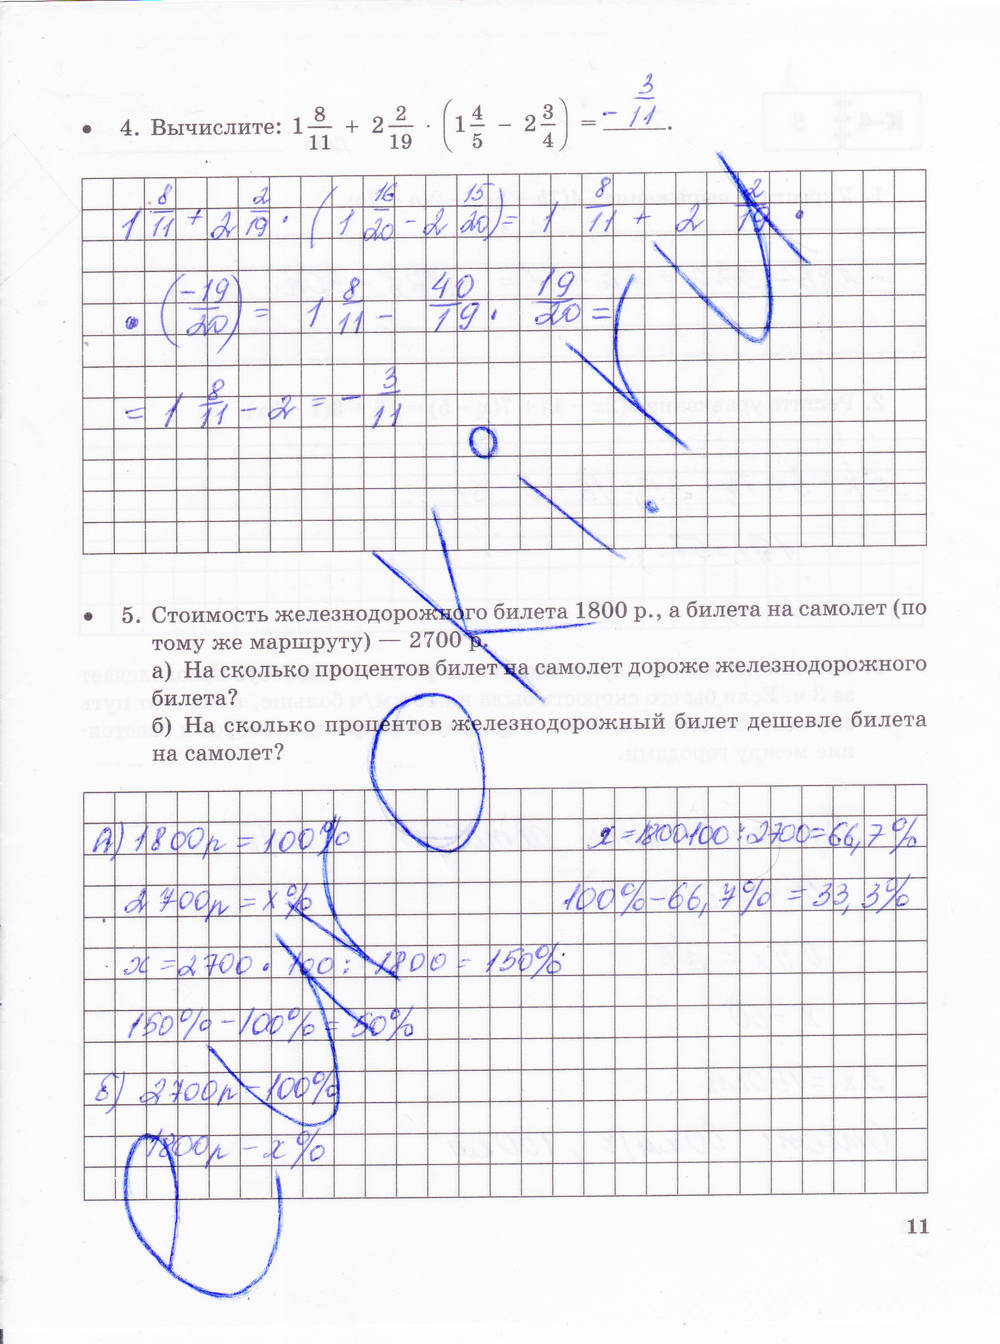 • 4. Вычислите: 1 8/11 + 2 2/19 · (1 4/5 − 2 3/4) = - 3/11.
1 8/11 + 2 2/19 · (1 16/20 - 2 15/20) = 1 8/11 + 2 2/19 ·
· (-19/20) = 1 8/11 - 40/19 · 19/20 =
= 1 8/11 - 2 = - 3/11
• 5. Стоимость железнодорожного билета 1800 р., а билета на самолет (по
тому же маршруту) — 2700 р.
а) На сколько процентов билет на самолет дороже железнодорожного
билета?
б) На сколько процентов железнодорожный билет дешевле билета
на самолет?
А) 1800р = 100%
2700р = х%
х = 2700 · 100 : 1800 = 150%
150% - 100% = 50%
Б) 2700р - 100%
1800р - х%
х = 1800·100 : 2700 = 66,7%
100% - 66,7% = 33,3%
11